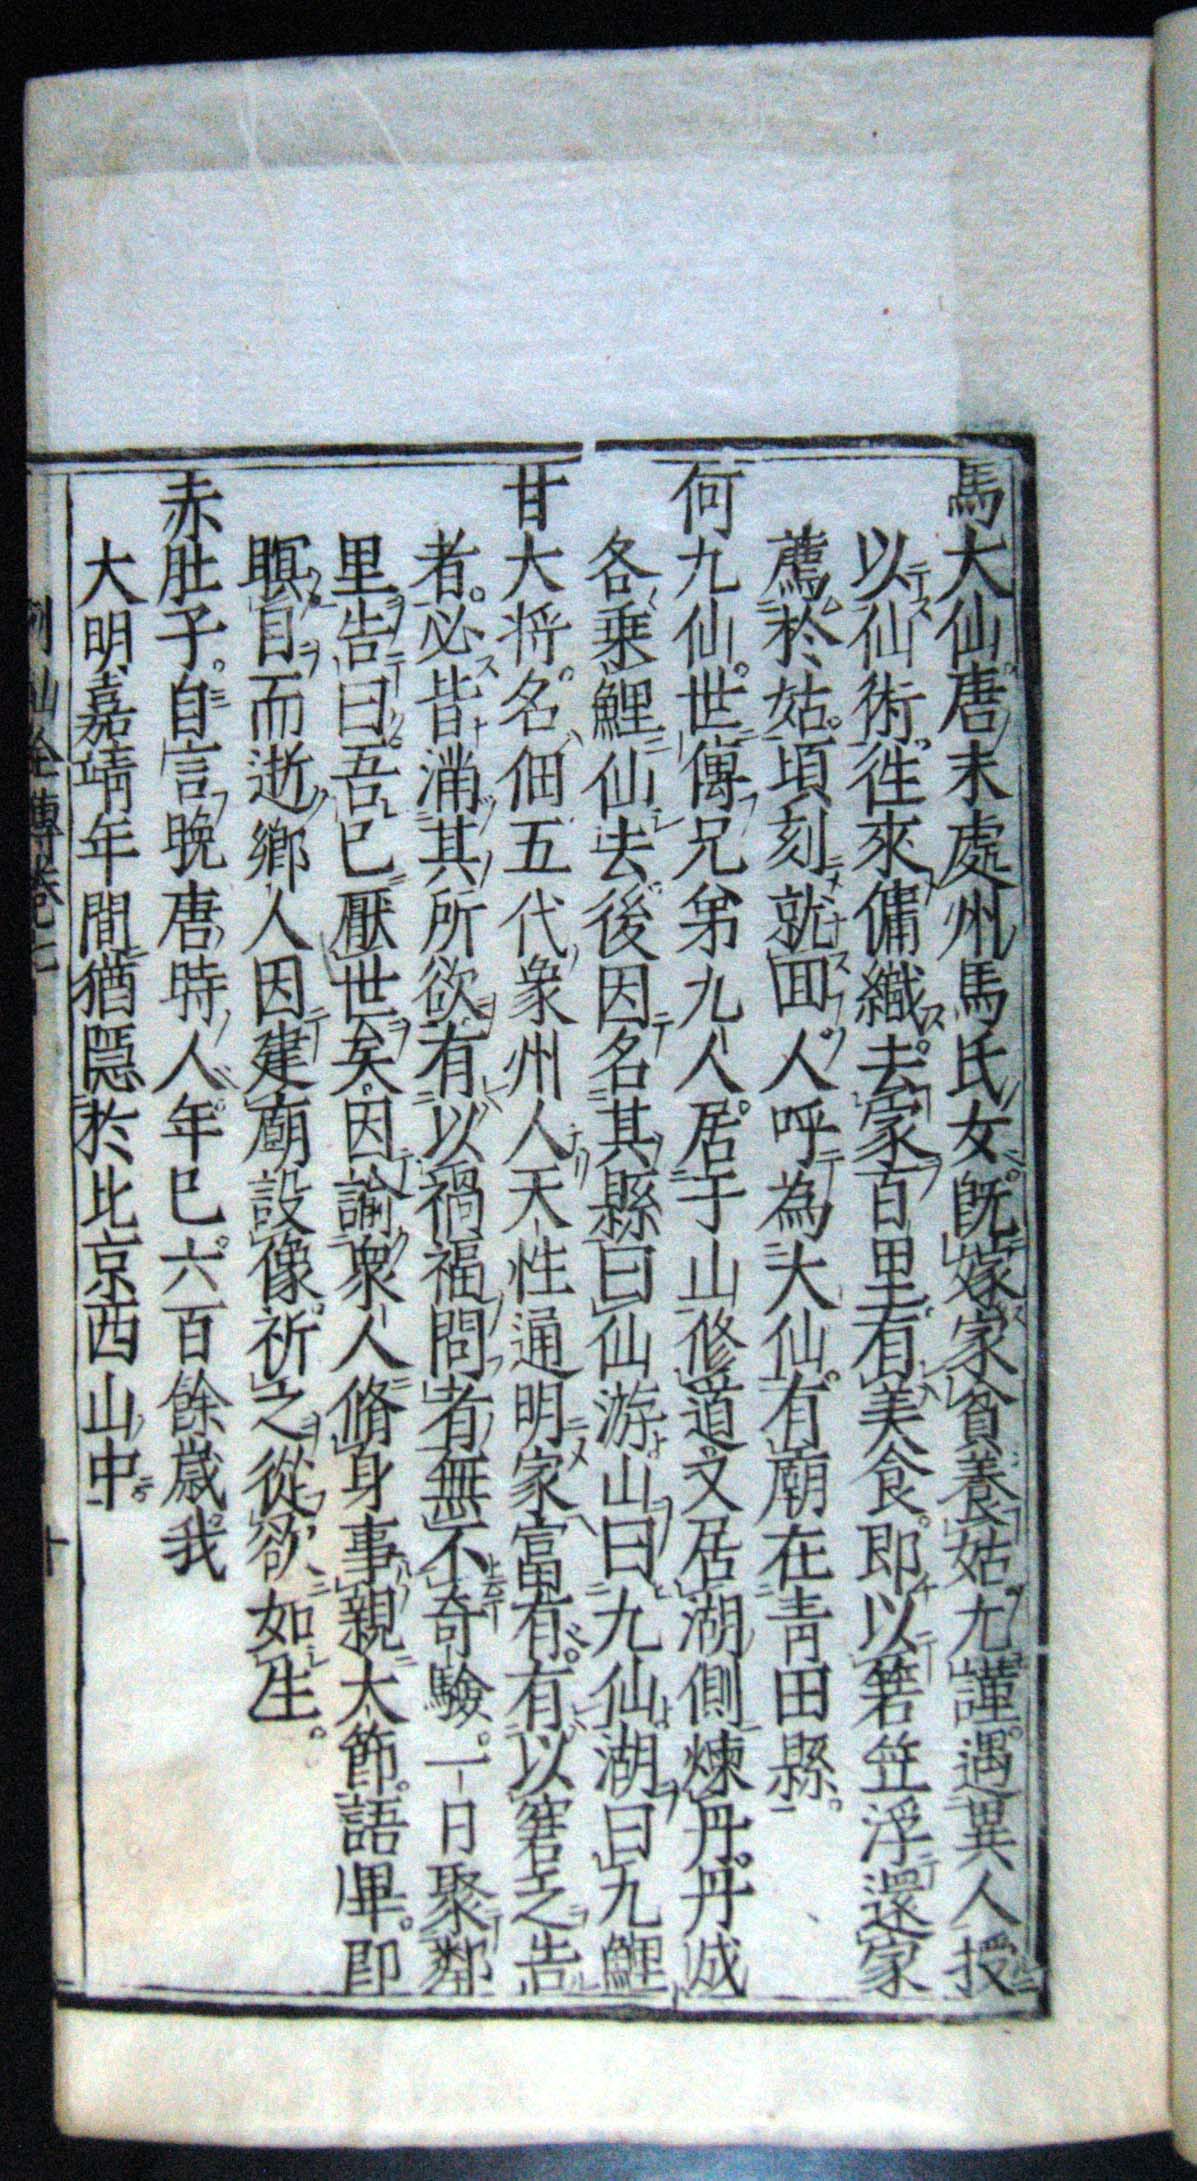 馬大仙唐末處州馬氏女。既嫁家貧養姑尤謹。遇異人授
以仙術。徃來傭織去家百里有美食。即以箬笠浮還家
薦於姑。頃刻就回人呼為大仙。有廟在青田縣。
何九仙。世傳兄弟九人。居于山修道。又居湖側煉丹。丹成
各乗鯉仙去。後因名其縣曰仙游山曰九仙湖曰九鯉
甘大將。名佃五代衆州人天性通明家富有。有以窘乏告
者。必皆滿其所欲有以禍福問者無不奇驗。一日聚鄰
里告曰吾已厭世矣。因諭衆人脩身事親大節。語畢。即
瞑目而逝鄉人因建廟設像。祈之從欲如生。
赤肚子。自言晩唐時人。年已六百餘歲。我
大明嘉靖年間猶隱於北京西山中
列仙全傳卷七
十